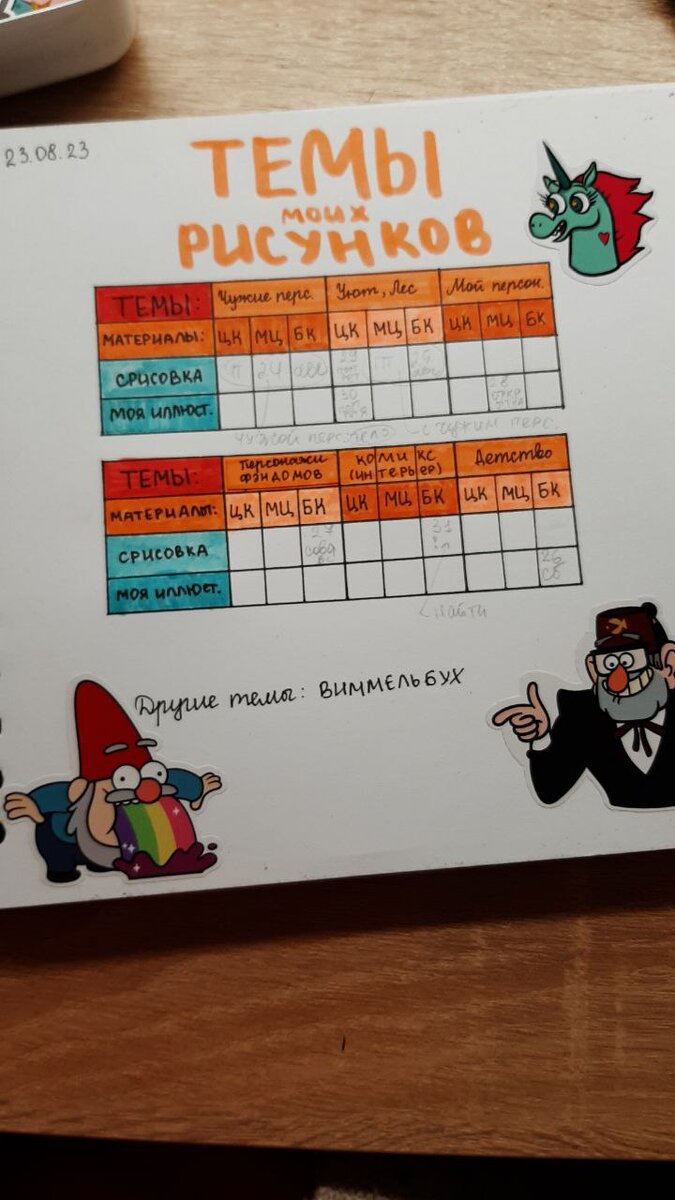 23.08.23
ТЕМЫ
МОИХ
РИСУНКОВ
ТЕМЫ: Чужие перс. Уют, Лес Мой персон.
МАТЕРИАЛЫ: ЦК МЦ БК ЦК МЦ БК ЦК МЦ БК
СРИСОВКА 24 29 25
МОЯ ИЛЛЮСТ. 30 28
ТЕМЫ: Персонажи фэндомов КОМИКС (ИНТЕРЬЕР) Детство
МАТЕРИАЛЫ: ЦК МЦ БК ЦК МЦ БК ЦК МЦ БК
СРИСОВКА 27 31
МОЯ ИЛЛЮСТ. 26
найти
Другие темы: ВИММЕЛЬБУХ